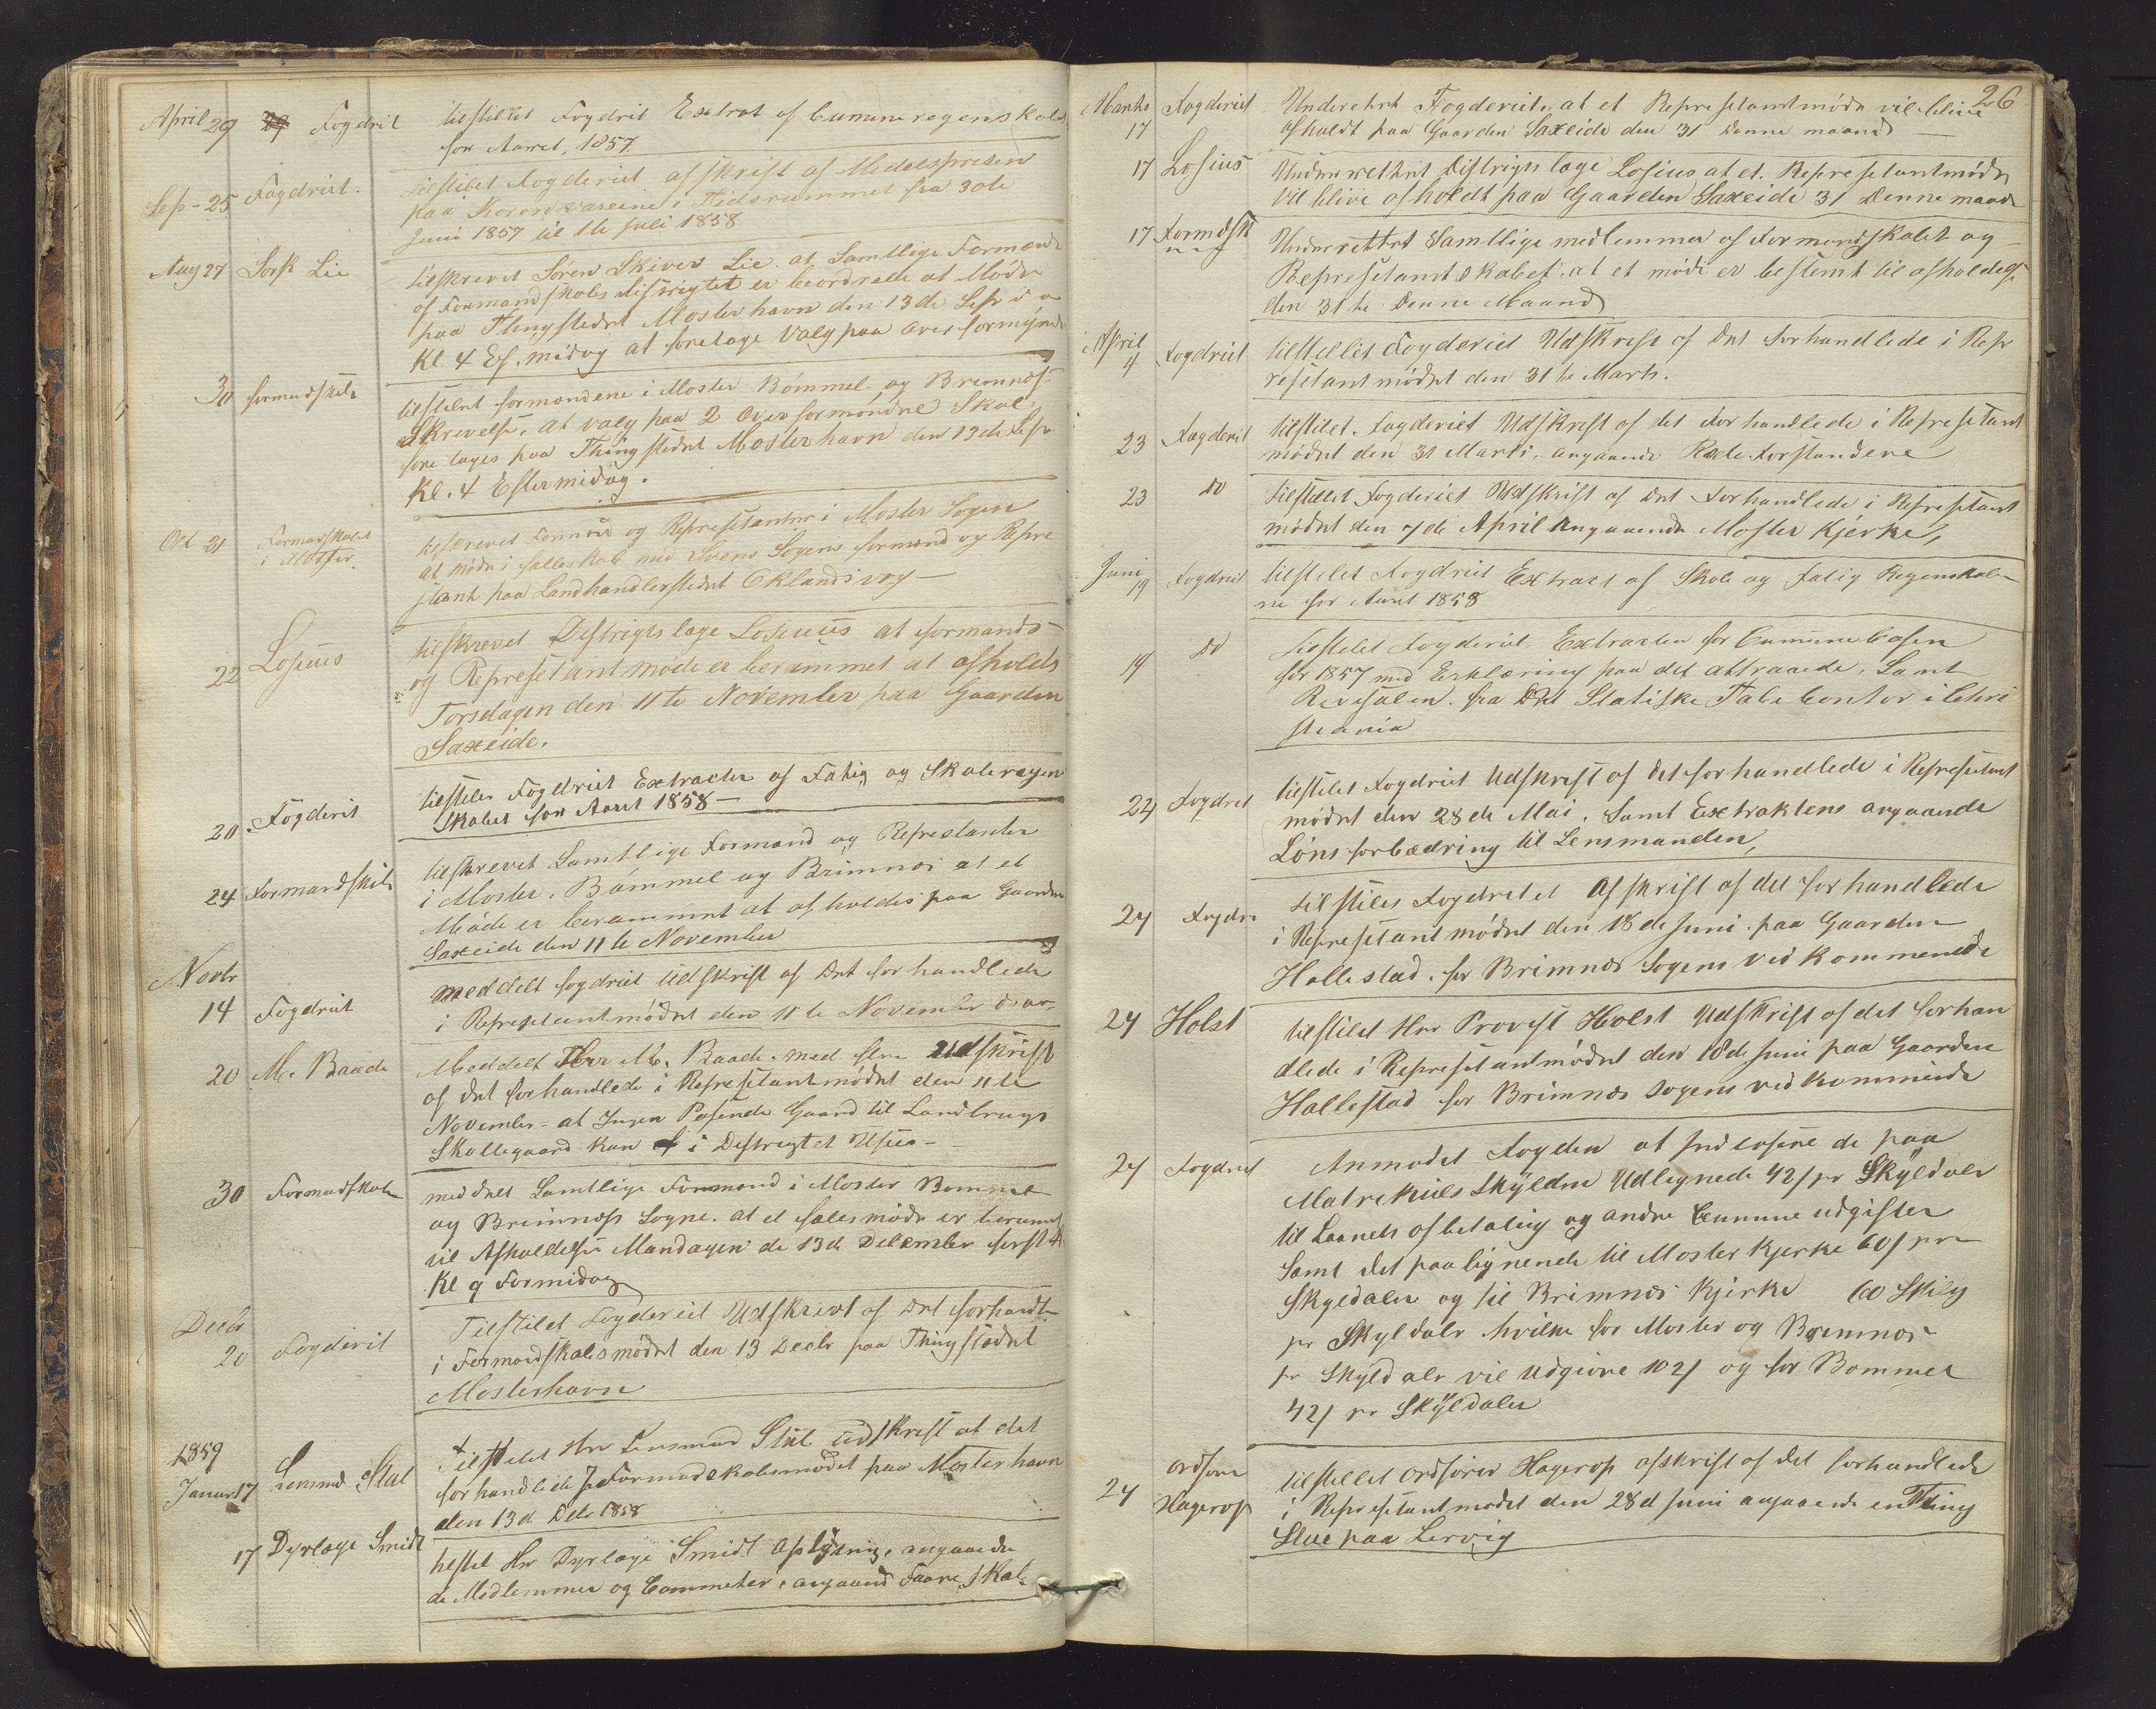 April 29 Fogdrit tilstillet Fogdrit Extrat af Cumuneregenskab
for Aaret, 1857
Sep - 25 Fogdriet. tilstilet Fogderiet afskrift af Medelsprisen
paa Korenvarene i Tidsrummet fra 30te
Juni 1857 til 1te Juli 1858
Aug 27 Sorsk Lie tilskrevet Sören Skiver Lie at Samtlige Formænd
af Formandskabs distrigtet er beordrede at Möde
paa Thingstedet Mosterhavn den 13de Sepr d a
Kl. 4 Ef. midag at foretage Valg paa Overformynd
30 formndskab tilstilet formændene i Moster Bömmel og Bremnæs
Skrevelse, at valg paa 2 Overformöndre Skal
foretages paa Thingstedet Mosterhavn den 13de Sepr
Kl. 4 Eftermidag.
Okt 21 Formandskabet
i Moster. tilskrevet Formænd og Represetanter i Moster Sogen
at möde i fælleskab med Svens Sogens formænd og Repre
stant paa Landhandlerstedet Eklandsvog —
22 Losius tilskrevet Distrigts læge Losius at formands
og Represetantmöde er berammet at afholdes
Torsdagen den 11te November paa Gaarden
Saxeide.
20 Fogderit tilstiles Fogdriet Extracter af Fatig og Skoleregen
skabet for Aaret 1858 —
24 Formandskab tilskrevet Samtlige Formænd og Represtanter
i Moster, Bömmel og Brimnæs at et
Möde er berammet at afholdes paa Gaarden
Saxeide den 11te November
Novbr
14 Fogdriet meddelt fogdriet Udskrift af det forhandlede
i Represetantmödet den 11te November d. aar
20 M. Baade Meddelt Herr M. Baade med flere Udskrift
af det forhandlede i Represetantmödet den 11te
November - at Ingen Pasende Gaard til Landbrugs
Skollegaard kan i Destrigtet Uses -
30 Formandskab meddelt Samtlige Formænd i Moster Bommel
og Brimnæss Sogne. at et fælesmöde er beramet
til Afholdelse Mandagen de 13de December først
Kl 9 Formidag
Decbr
20 Fogderit Tilstilet Fogderiet Udskrivt af det forhandl
i Formandskabsmödet den 13 Decbr paa Thingstedet
Mosterhavn
1859
Januar 17 Lensmd Stal Tilstilet Hrr Lensmand Stal udskrift at det
forhandlede i Formandskabsmödet paa Mosterhavn
den 13d. Debr 1858
17 Dyrlæge Smidt Hr Dyrlæge Smidt oplysnig, angaaende
de Medlemmer og Commeter, angaaend Faare skab.
26
Marts
17 Fogderiet Underettet Fogderiet, at et Represetantmöde vil blive
afholdt paa Gaarden Saxeide den 31 denne maand —
17 Losius Underrettet Distrigts læge Losius at et. Represetantmöde
vil blive afholdt paa Gaarden Saxeide 31 Denne maand
17 Formdsk Underrettet Samtlige medlemmer af Formandskabet og
Represetantskabet at et möde er bestemt til afholdelse
den 31te Denne Maand
April
4 Fogdriet tilstillet Fogderiet Udskrift af det Forhandlede i Repr
resetantmödet den 31te Marts.
23 Fogderit tilstilet Fogderiet Udskrift af det Forhandlede i Represetant
mödet den 31 Marts, angaaende Rode Forstandere
23 Do tilstilet Fogderiet Udskrift af det Forhandlede i Represetant
mödet den 7de April Angaaende Moster Kjerke,
Juni
19 Fogdriet tilstilet Fogdriet Extract af Skole og Fatig Regenskabe-
ne for Aaret 1858
19 Do Tilstilet Fogderiet Extracten for Cumune Casen
for 1857 med Erklæring paa det attraaede, Samt
Revesalen. fra Det Statiske Tabe Contor i Chri
stiania
22 Fogdret tilstilet Fogdriet Udskrift af det forhandlede i Represetant
mödet den 28de Mai, Samt Extraktens angaaende
Löns forbædring til Lensmanden,
24 Fogdr tilstiles Fogdretet Afskrift af det forhandlede
i Represetantmödet den 18de Juni paa Gaarden
Hallestad. for Brimnæs Sogens ved Kommende
24 Holst tilstilet Hrr Provest Holst Udskrift af det forhan
dlede i Represetantmödet den 18de Juni paa Gaarden
Hallestad for Brimnæs sogens vedkommende
24 Fogdriet Anmodet Fogden at Indcasere de paa
Matrikuls Skylden Udlignede 42/ pr Skyldalr
til Laanets afbetaling og andre Cumune udgifter
Samt det paalignende til Moster kjerke 60/ pr
Skyldaler og til Brimnæs kjerke 60 Skilg
pr Skyldalr. hvilke for Moster og Bremnæs
pr Skyldalr vil Udgiøre 102/ og for Bommel
42/ pr Skyldaler
24 Ordfører
Hagerop tilstillet Ordfører Hagerop afskrift af det forhandlede
i Represetantmødet den 28d Juni angaaende en Thing
Stue paa Lervig